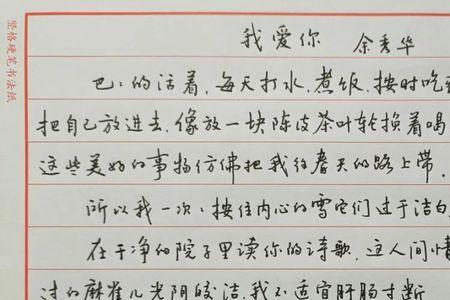 竖格硬笔书法纸
我爱你 余秀华
巴巴的活着，每天打水，煮饭，按时吃
把自己放进去，像放一块陈皮茶叶轮换着喝
这些美好的事物仿佛把我往春天的路上带，
所以我一次次按住内心的雪它们过于洁白
在干净的院子里读你的诗歌，这人间情
过的麻雀儿光阴皎洁，我不适宜肝肠寸断